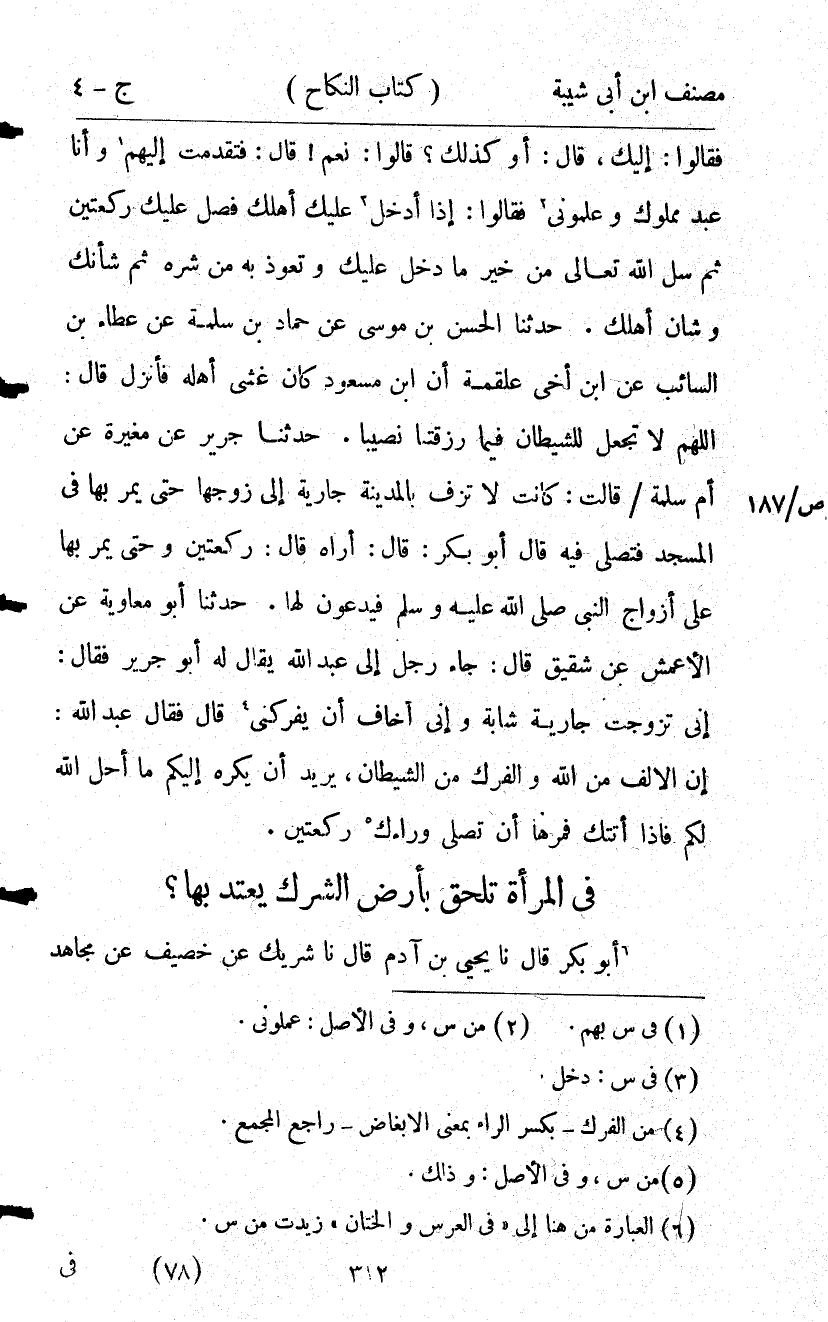 مصنف ابن أبى شيبة ( كتاب النكاح ) ج - ٤
فقالوا : إليك ، قال : أو كذلك ؟ قالوا : نعم ! قال : فتقدمت إليهم١ و أنا
عبد مملوك و علمونى٢ فقالوا : إذا أدخل٣ عليك أهلك فصل عليك ركعتين
ثم سل الله تعالى من خير ما دخل عليك و تعوذ به من شره ثم شأنك
و شان أهلك . حدثنا الحسن بن موسى عن حماد بن سلمة عن عطاء بن
السائب عن ابن أخى علقمة أن ابن مسعود كان غشى أهله فأنزل قال :
اللهم لا تجعل للشيطان فيما رزقتنا نصيبا . حدثنا جرير عن مغيرة عن
أم سلمة / قالت : كانت لا تزف بالمدينة جارية إلى زوجها حتى يمر بها فى
ص/١٨٧
المسجد فتصلى فيه قال أبو بكر : قال : أراه قال : ركعتين و حتى يمر بها
على أزواج النبى صلى الله عليه و سلم فيدعون لها . حدثنا أبو معاوية عن
الأعمش عن شقيق قال : جاء رجل إلى عبد الله يقال له أبو جرير فقال :
إنى تزوجت جارية شابة و إنى أخاف أن يفركنى٤ قال فقال عبد الله :
إن الالف من الله و الفرك من الشيطان ، يريد أن يكره إليكم ما أحل الله
لكم فاذا أتتك فمرها أن تصلى وراءك٥ ركعتين .
فى المرأة تلحق بأرض الشرك يعتد بها ؟
٦أبو بكر قال نا يحيى بن آدم قال نا شريك عن خصيف عن مجاهد
(١) فى س بهم . (٢) من س ، و فى الأصل : عملونى .
(٣) فى س : دخل .
(٤) من الفرك ـ بكسر الراء بمعنى الابغاض ـ راجع المجمع .
(٥) من س ، و فى الأصل : و ذالك .
(٦) العبارة من هنا إلى « فى العرس و الختان » زيدت من س .
٣١٢ (٧٨) فى